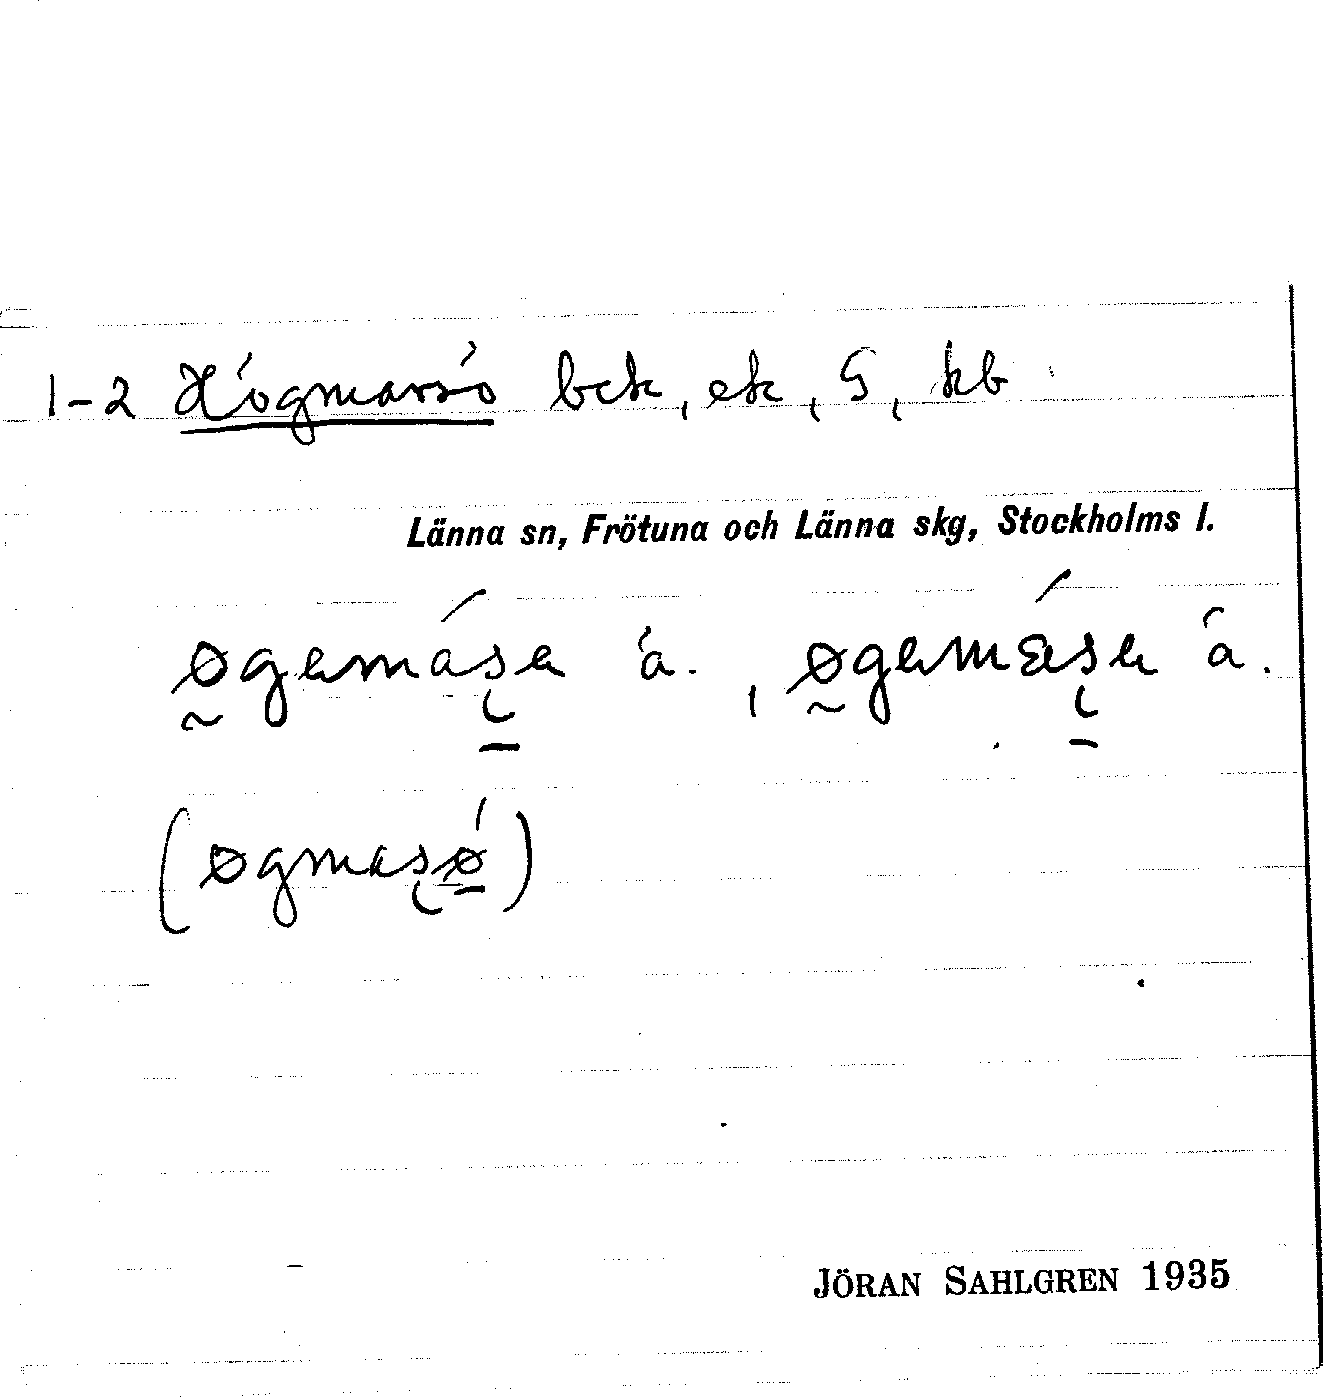 1-2 Högmarsö bck, ek, G, kb
Länna sn, Frötuna och Länna skg, Stockholms l.
øgemása a. , øgemása a.
(øgmasø)
JÖRAN SAHLGREN 1935